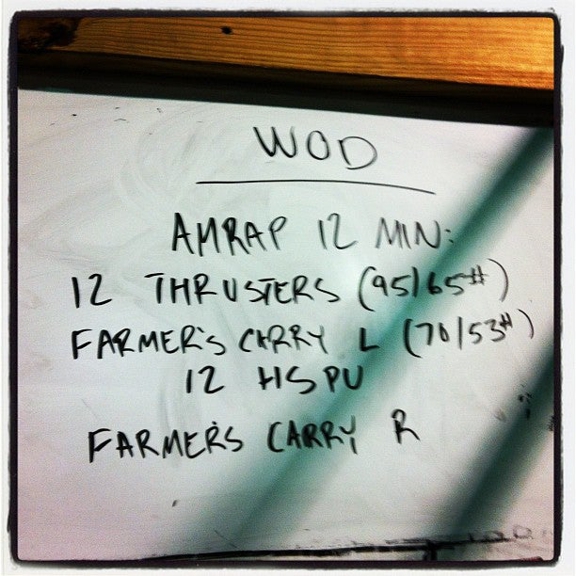 WOD
AMRAP 12 MIN:
12 THRUSTERS (95/65#)
FARMER'S CARRY L (70/53#)
12 HSPU
FARMER'S CARRY R